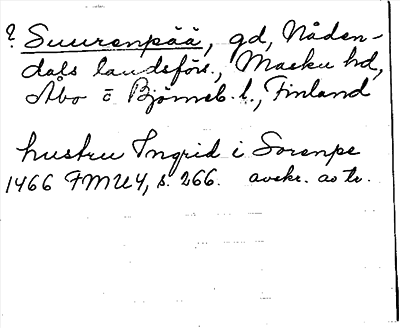 ? Suurenpää, gd, Nåden-
dals landsförs., Masku hd,
Åbo o Björneb. l., Finland
hustru Ingrid i Sorenpe
1466 FMU4, s. 266. avskr. ao tr.